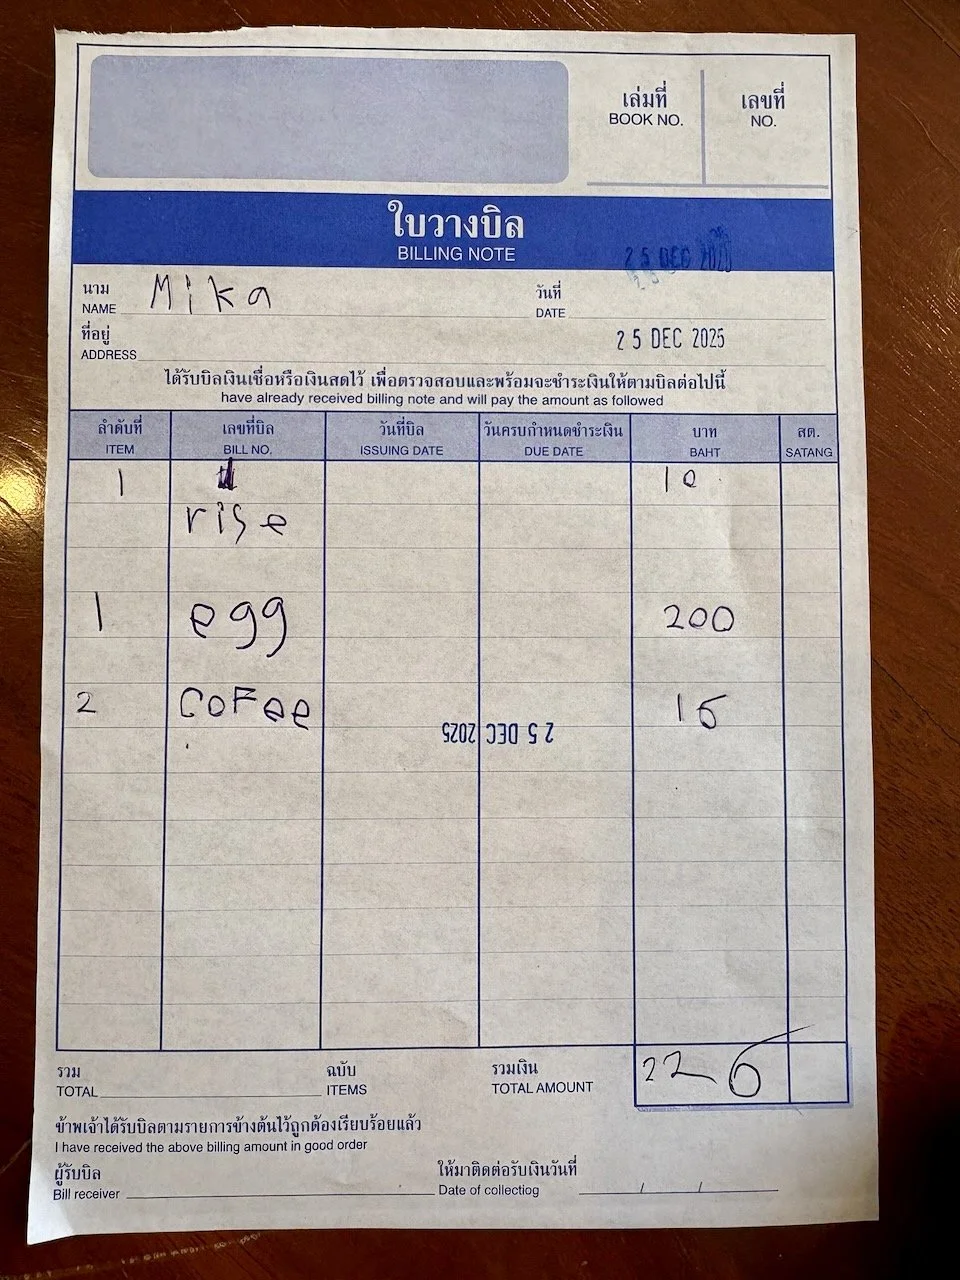 เล่มที่
BOOK NO.
เลขที่
NO.
ใบวางบิล
BILLING NOTE
25 DEC 2020
นาม
NAME Mika
วันที่
DATE
25 DEC 2025
ที่อยู่
ADDRESS
ได้รับบิลเงินเชื่อหรือเงินสดไว้ เพื่อตรวจสอบและพร้อมจะชำระเงินให้ตามบิลต่อไปนี้
have already received billing note and will pay the amount as followed
ลำดับที่ เลขที่บิล วันที่บิล วันครบกำหนดชำระเงิน บาท สต.
ITEM BILL NO. ISSUING DATE DUE DATE BAHT SATANG
1 10
rise
1 egg 200
2 coFee 16
25 DEC 2025
รวม ฉบับ รวมเงิน
TOTAL ITEMS TOTAL AMOUNT 226
ข้าพเจ้าได้รับบิลตามรายการข้างต้นไว้ถูกต้องเรียบร้อยแล้ว
I have received the above billing amount in good order
ผู้รับบิล ให้มาติดต่อรับเงินวันที่
Bill receiver Date of collectiog / /